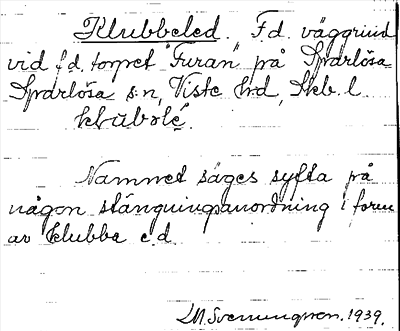 Klubbeled. F.d. väggrind
vid f.d. torpet "Furan" på Sparlösa
Sparlösa s:n, Viste hd, Skb. l.
klubəlé.
Namnet säges syfta på
någon stängningsanordning i form
av klubba e.d.
D.M. Svenningsson. 1939.